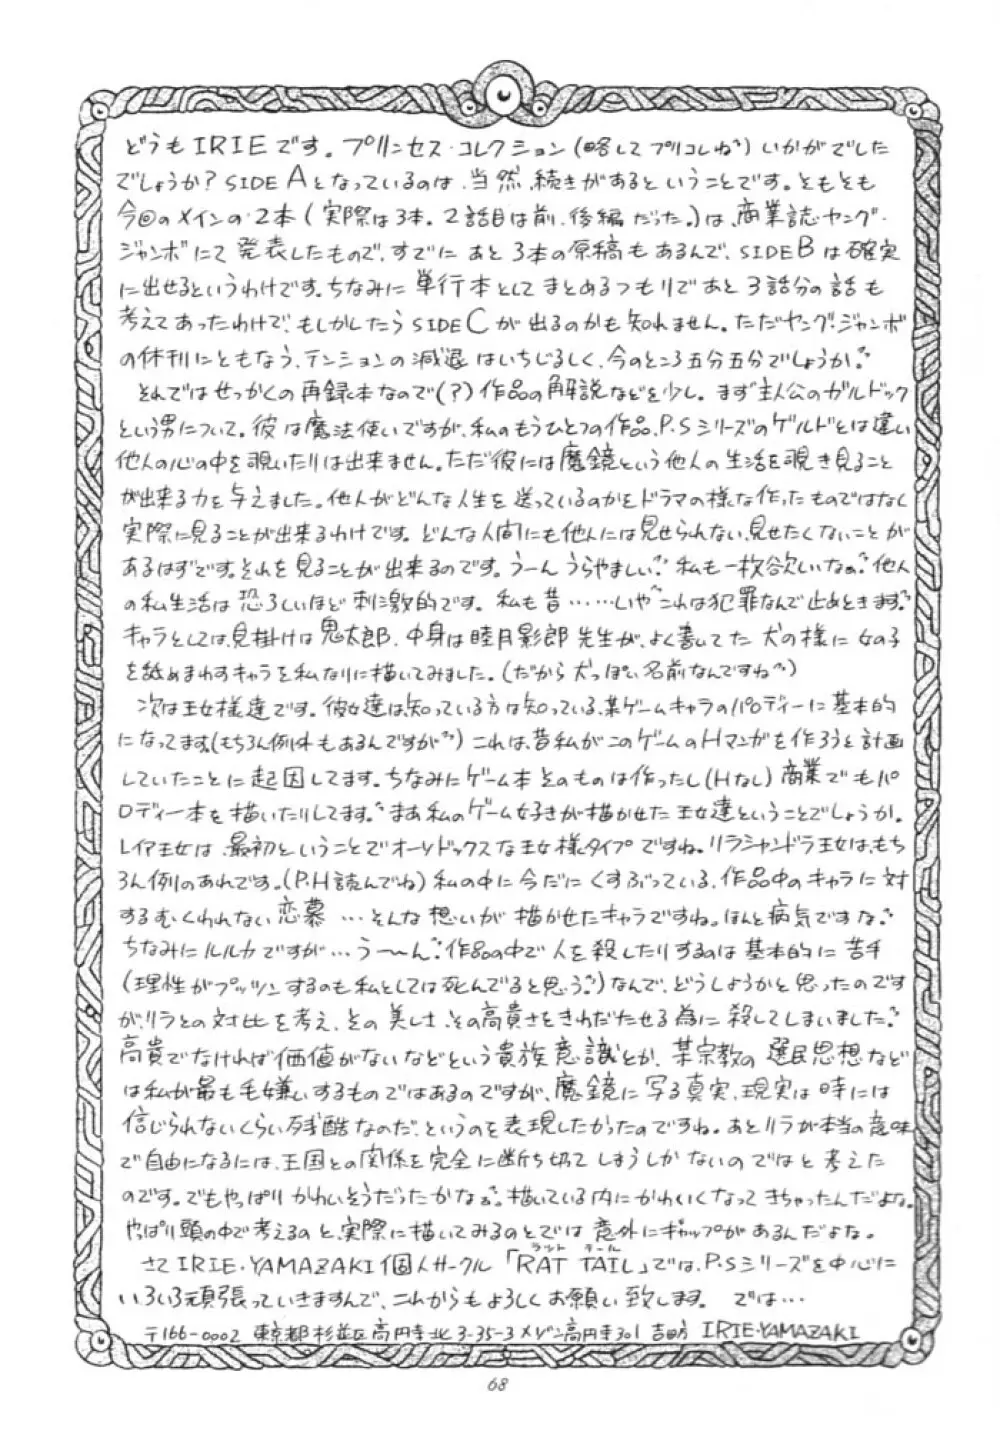 どうもIRIEです。プリンセス・コレクション(略してプリコレね)いかがでした
でしょうか?SIDE Aとなっているのは、当然、続きがあるということです。そもそも
今回のメインの2本(実際は3本。2話目は前、後編だった。)は、商業誌ヤング・
ジャンボにて発表したもので、すでにあと3本の原稿もあるんで、SIDE Bは確実
に出せるというわけです。ちなみに単行本としてまとめるつもりであと3話分の話も
考えてあったわけで、もしかしたらSIDE Cが出るのかも知れません。ただヤング・ジャンボ
の休刊にともなう、テンションの減退はいちじるしく、今のところ五分五分でしょうか。
それではせっかくの再録本なので(?)作品の解説などを少し。まず主人公のガルドック
という男について。彼は魔法使いですが、私のもうひとつの作品、P.Sシリーズのゲルドとは違い
他人の心の中を覗いたりは出来ません。ただ彼には魔鏡という他人の生活を覗き見ること
が出来る力を与えました。他人がどんな人生を送っているのかをドラマの様な作ったものではなく
実際に見ることが出来るわけです。どんな人間にも他人には見せられない、見せたくないことが
あるはずです。それを見ることが出来るのです。うーんうらやましい。私も一枚欲しいなぁ。他人
の私生活は恐ろしいほど刺激的です。私も昔……いやこれは犯罪なんで止めときます。
キャラとしては、見掛けは鬼太郎、中身は睦月影郎先生が、よく書いてた犬の様に女の子
を舐めまわすキャラを私なりに描いてみました。(だから犬っぽい名前なんですね)
次は王女様達です。彼女達は、知っている方は知っている、某ゲームキャラのパロディーに基本的
になってます。(もちろん例外もあるんですが)これは、昔私がこのゲームのHマンガを作ろうと計画
していたことに起因してます。ちなみにゲーム本そのものは作ったし(Hなし)商業でもパ
ロディー本を描いたりしてます。まあ私のゲーム好きが描かせた王女達ということでしょうか。
レイア王女は、最初ということでオーソドックスな王女様タイプですね。リラシャンドラ王女は、もち
ろん例のあれです。(P.H読んでね)私の中に今だにくすぶっている、作品中のキャラに対
するむくわれない恋慕…そんな想いが描かせたキャラですね。ほんと病気ですな。
ちなみにルルカですが…う〜〜ん。作品の中で人を殺したりするのは基本的に苦手
(理性がプッツンするのも私としては死んでると思う。)なんで、どうしようかと思ったのです
が、リラとの対比を考え、その美しさ、その高貴さをきわだたせる為に殺してしまいました。
高貴でなければ価値がないなどという貴族意識とか、某宗教の選民思想など
は私が最も毛嫌いするものではあるのですが、魔鏡に写る真実、現実は時には
信じられないくらい残酷なのだ、というのを表現したかったのですね。あとリラが本当の意味
で自由になるには、王国との関係を完全に断ち切ってしまうしかないのではと考えた
のです。でもやっぱりかわいそうだったかなぁ。描いている内にかわいくなってきちゃったんだよな。
やっぱり頭の中で考えるのと、実際に描いてみるのとでは意外にギャップがあるんだよな。
さてIRIE・YAMAZAKI個人サークル「RAT TAIL」では、P.Sシリーズを中心に
ラット テール
いろいろ頑張っていきますんで、これからもよろしくお願い致します。 では…
〒166-0002 東京都杉並区高円寺北3-35-3メゾン高円寺301 吉田方 IRIE・YAMAZAKI
68